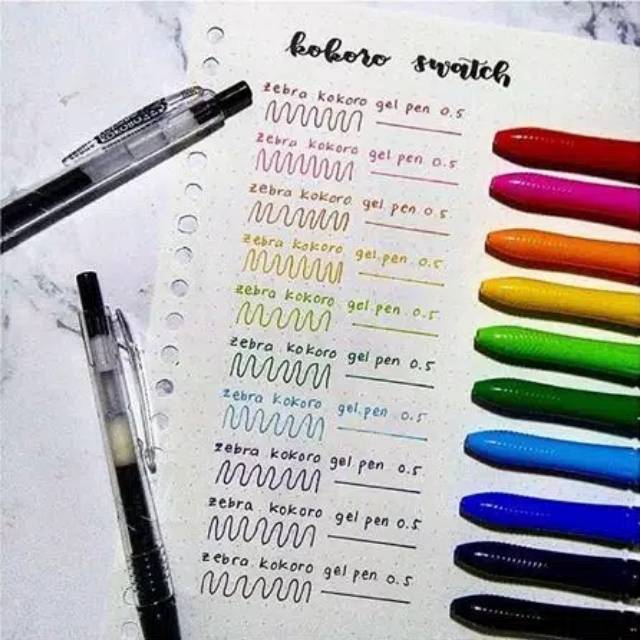 kokoro swatch
zebra kokoro gel pen 0.5
zebra kokoro gel pen 0.5
zebra kokoro gel pen 0.5
zebra kokoro gel pen 0.5
zebra kokoro gel pen 0.5
zebra kokoro gel pen 0.5
zebra kokoro gel pen 0.5
zebra kokoro gel pen 0.5
zebra kokoro gel pen 0.5
zebra kokoro gel pen 0.5